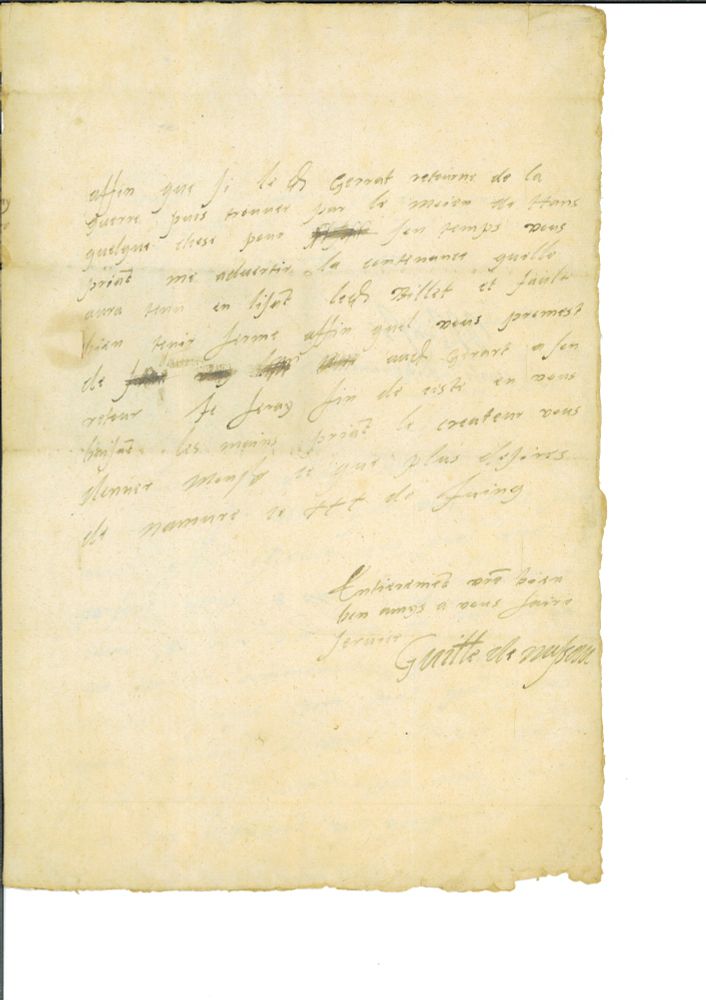 affin que si le dt Gerrat retourne de la
guerre puis trouver par le moien de Hans
quelque chose pour son temps vous
priāt me advertir la contenance quelle
aura tenu en lisāt ledt Billet et fault
bien tenir ferme affin quel vous promest
de audt Gerart a son
retour Je feray fin de ceste en vous
baisāt les mains priāt le createur vous
donner Monsr ce que plus desires
de namure ce ttt de Juing
Entieremēt vrē bien
bon amys a vous faire
service
Guille de nassau